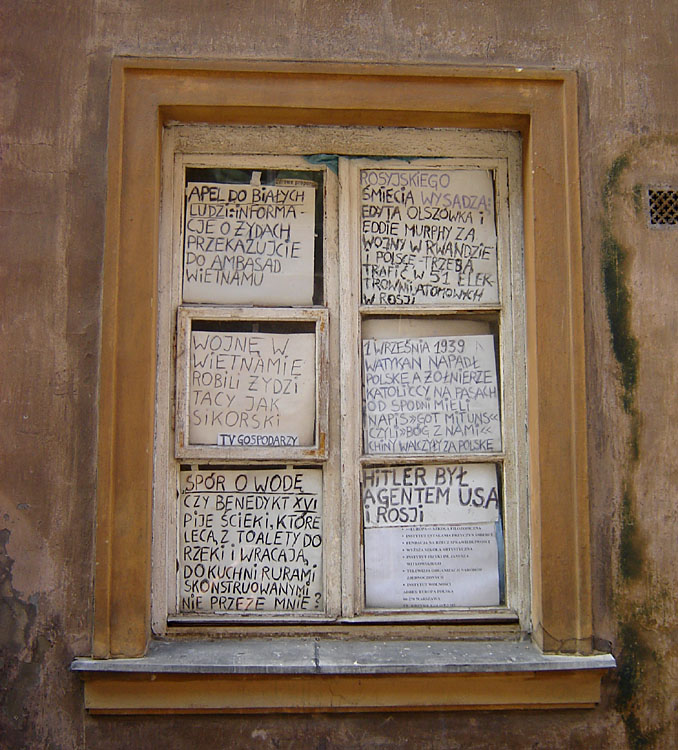 APEL DO BIAŁYCH
LUDZI: INFORMA-
CJE O ŻYDACH
PRZEKAZUJCIE
DO AMBASAD
WIETNAMU
WOJNĘ W
WIETNAMIE
ROBILI ŻYDZI
TACY JAK
SIKORSKI
TV GOSPODARZY
SPÓR O WODĘ
CZY BENEDYKT XVI
PIJE ŚCIEKI, KTÓRE
LECĄ Z TOALETY DO
RZEKI I WRACAJĄ
DO KUCHNI RURAMI
SKONSTRUOWANYMI
NIE PRZEZE MNIE?
ROSYJSKIEGO
ŚMIECIA WYSADZĄ:
EDYTA OLSZÓWKA I
EDDIE MURPHY ZA
WOJNY W RWANDZIE
I POLSCE - TRZEBA
TRAFIĆ W 51 ELEK-
TROWNI ATOMOWYCH
W ROSJI
1 WRZEŚNIA 1939
WATYKAN NAPADŁ
POLSKĘ A ŻOŁNIERZE
KATOLICCY NA PASACH
OD SPODNI MIELI
NAPIS »GOT MIT UNS«
CZYLI »BÓG Z NAMI«
CHINY WALCZYŁY ZA POLSKĘ
HITLER BYŁ
AGENTEM USA
I ROSJI
INSTYTUT WOLNOŚCI
00-270 WARSZAWA